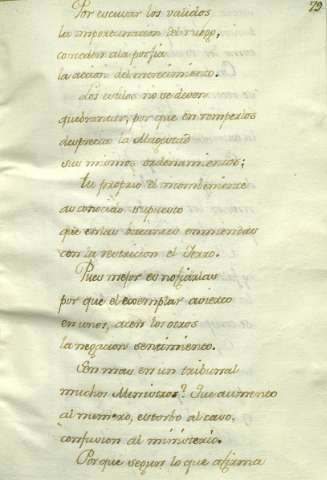 79
Por escusar los validos
la importunacion del ruego,
conceden a la porfia
la accion del merecimiento.
Los estilos no se deven
quebrantar, por que en romperlos
desprecia la Magestad
sus mismos ordenamientos;
tu proprio el nombramiento
as conocido supuesto
que en las bacantes enmiendas
con la restricion el Yerro.
Pues mejor es no
por que el exemplar avierto
en unos, acen los otros
la negacion sentimiento.
En mas en un tribunal
muchos Ministros? Que aumento
al numero, estorbo al caso,
confusion al ministerio.
Porque segun lo que afirma